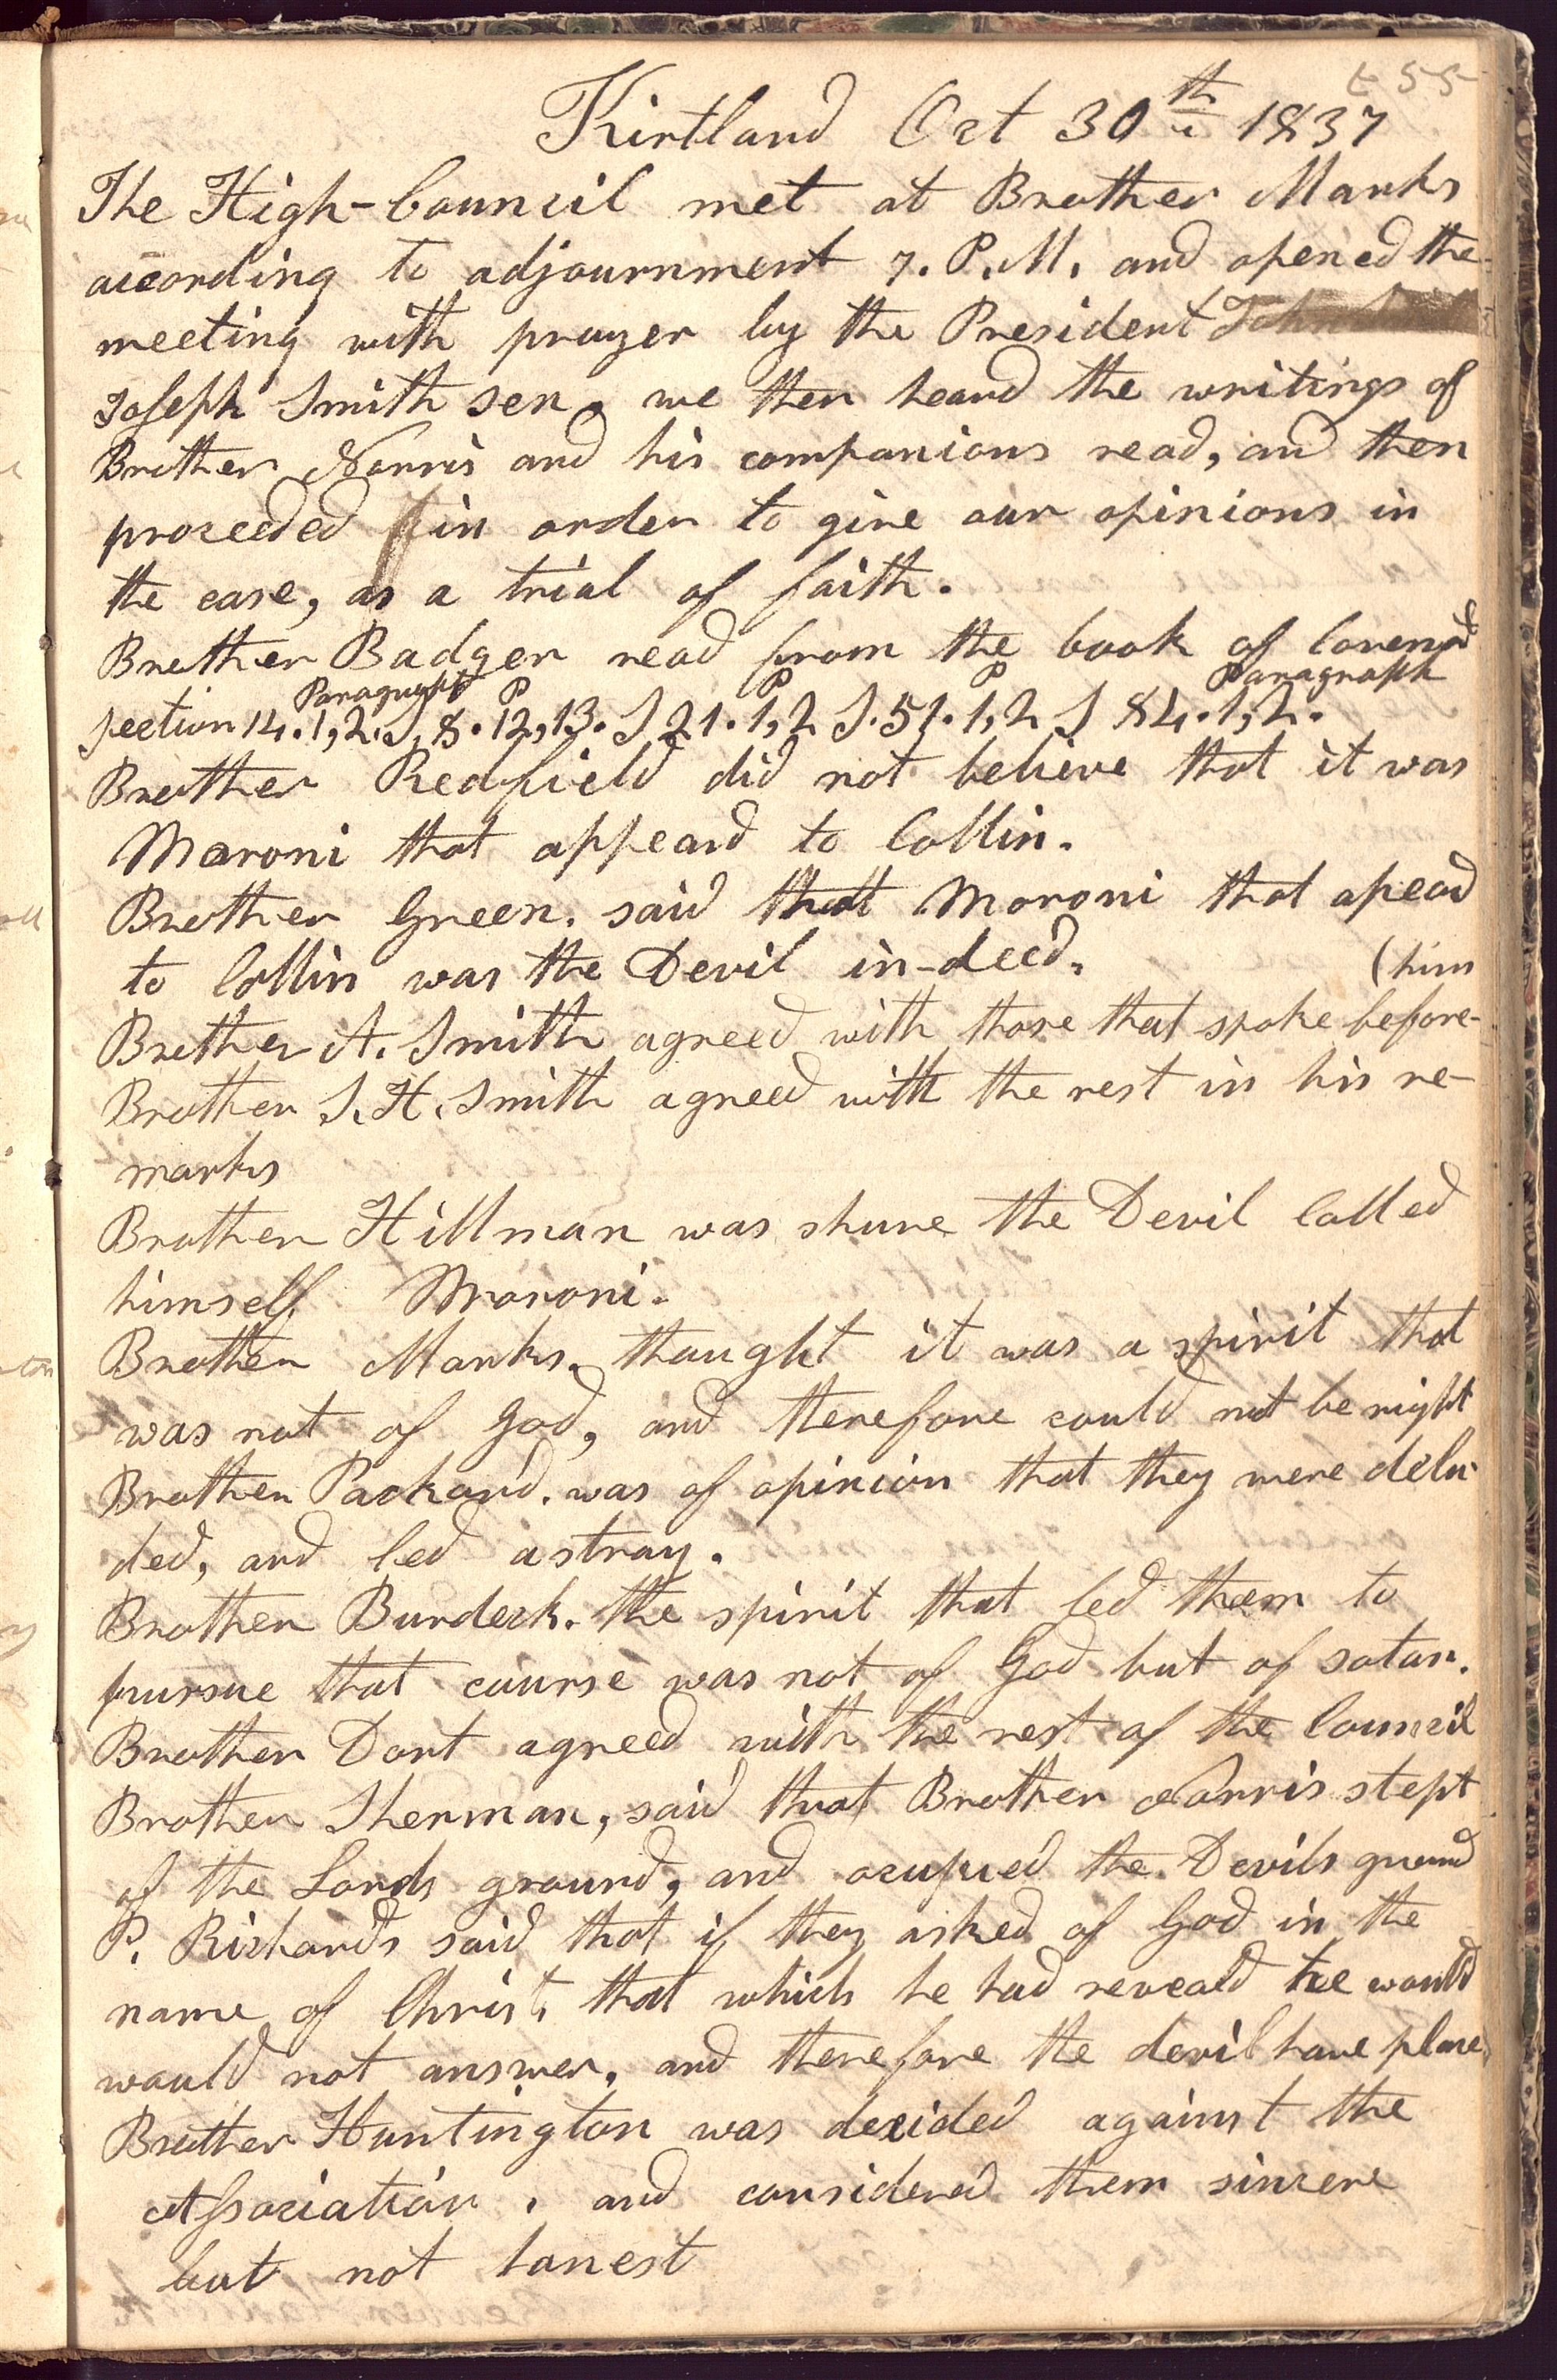 255
Kirtland Oct 30th 1837
The High-Council met at Brother Marks
according to adjournment 7. P.M. and opened the
meeting with prayer by the President John
Joseph Smith sen. we then heard the writings of
Brother Norris and his companions read, and then
proceeded in order to give our opinions in
the case, as a trial of faith.
Brother Badger read from the book of Covend
Paragraph P P P Paragraph
section 14. 1, 2. S, 8. 12, 13. S 21. 1, 2 S. 51. 1, 2 S 84. 1, 2.
Brother Redfield did not believe that it was
Maroni that appeard to Collin.
Brother Green. said that Moroni that apeard
to Collin was the Devil in-deed.
(him
Brother A. Smith agreed with those that spoke before-
Brother S. H. Smith agreed with the rest in his re-
marks
Brother Hillman was shure the Devil Called
himself Moroni.
Brother Marks. thought it was a spirit that
was not of God, and therefore could not be right
Brother Packard. was of opinion that they were delu-
ded, and led astray.
Brother Burdeck. the spirit that led them to
pursue that course was not of God but of satan.
Brother Dort agreed with the rest of the Council
Brother Sherman, said that Brother Norris stept
of the Lords ground, and ocupied the Devils ground
P. Richards said that if they asked of God in the
name of Christ, that which he had reveald he would
would not answer, and therefore the devil have place.
Brother Huntington was decided against the
Association, and considered them sincere
but not honest